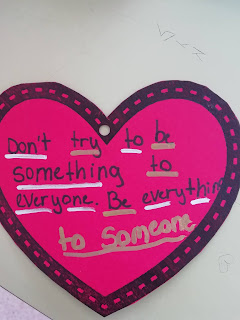 Don't try to be
something to
everyone. Be everything
to Someone